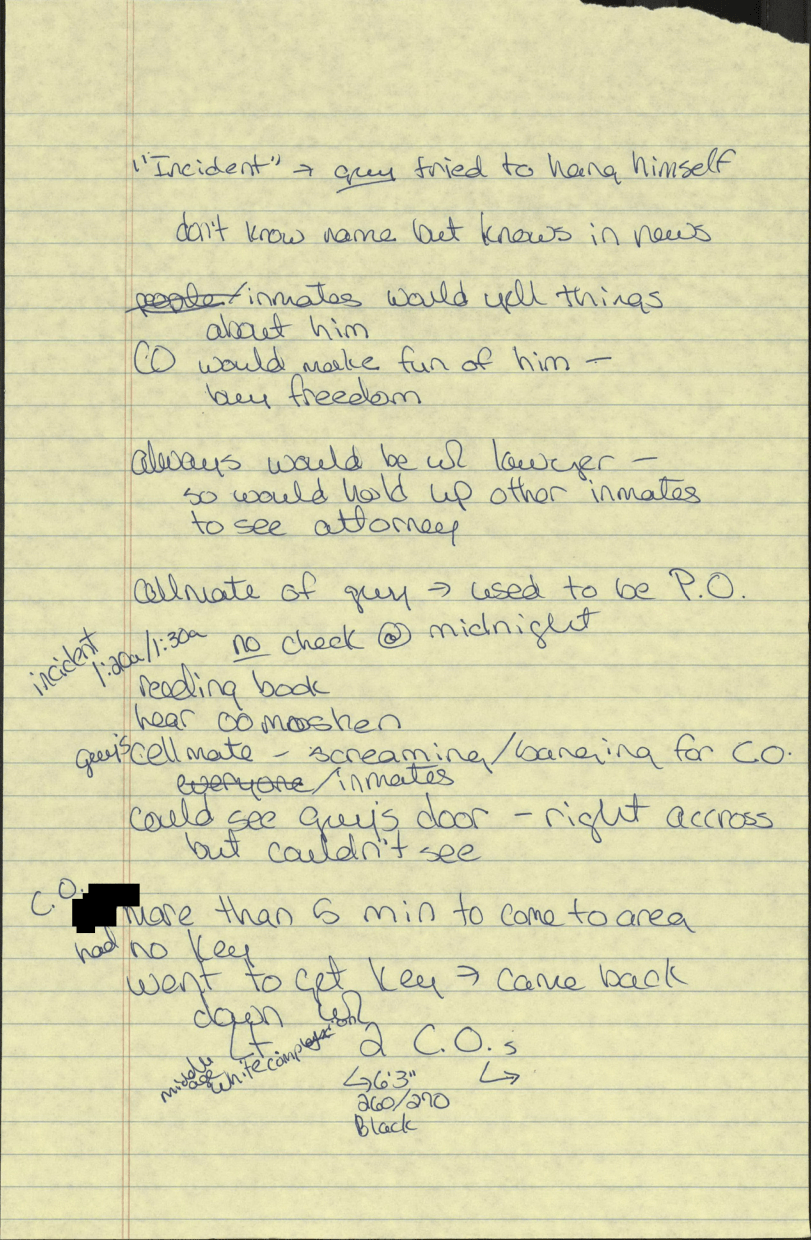 "Incident" → guy tried to hang himself
don't know name but knows in news
people/inmates would yell things
about him
CO would make fun of him –
buy freedom
always would be w/ lawyer –
so would hold up other inmates
to see attorney
cellmate of guy → used to be P.O.
incident 1:20a/1:30a
no check @ midnight
reading book
hear commotion
guy's cellmate – screaming/banging for C.O.
everyone/inmates
could see guy's door – right accross
but couldn't see
C.O.
more than 5 min to come to area
had no key
went to get key → came back
down w/
middle age
white complexion
2 C.O.s
↳ 6'3" ↳
260/270
Black